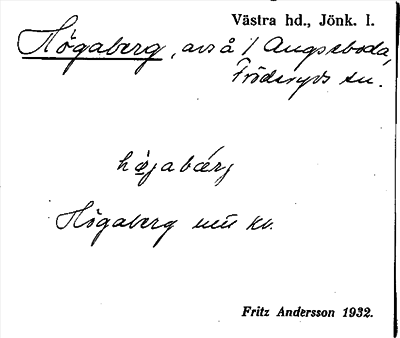 Västra hd., Jönk. l.
Högaberg, avs å 1 Augseboda,
Fröderyds sn.
högabærj
Högaberg uuu kv.
Fritz Andersson 1932.